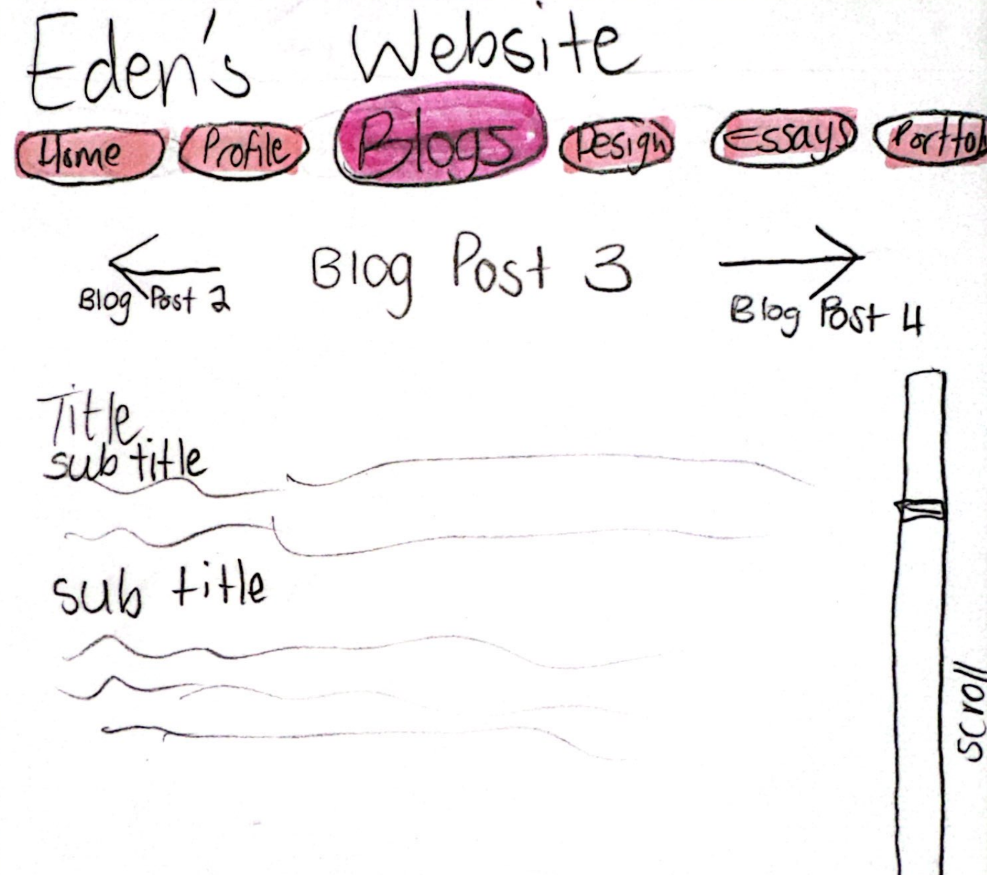 Eden's Website
Home Profile Blogs Design Essays Portfol
Blog Post 3
Blog Post 2
Blog Post 4
Title
sub title
sub title
scroll